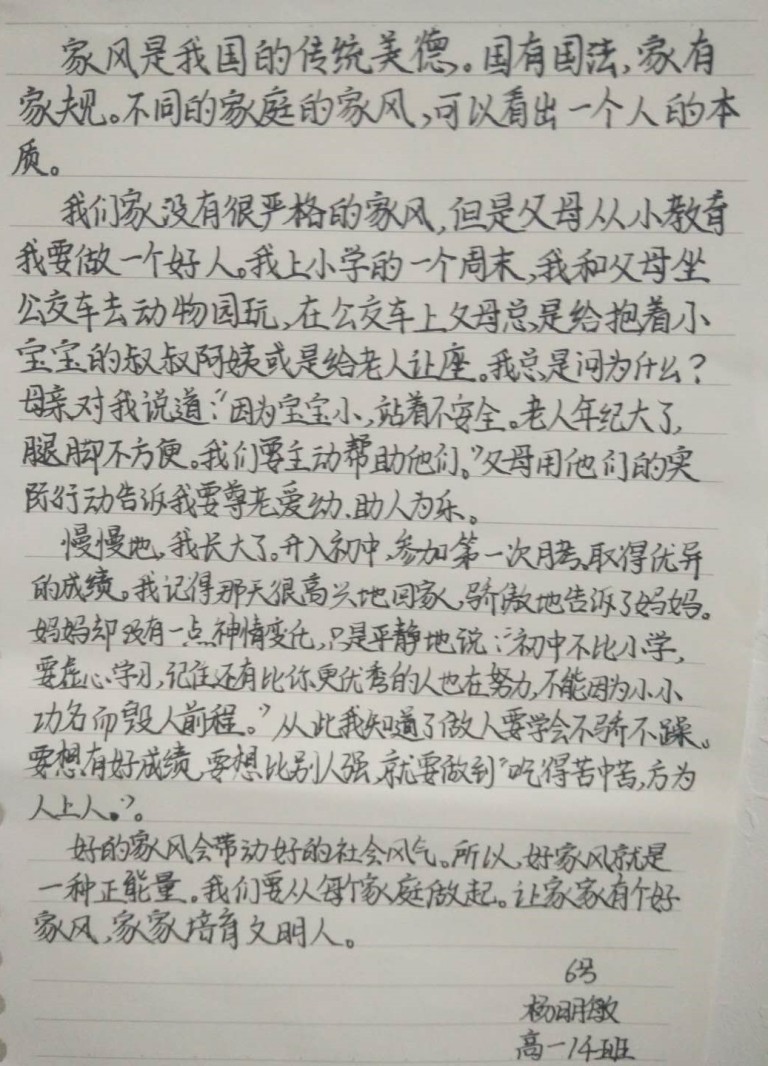 家风是我国的传统美德。国有国法,家有
家规。不同的家庭的家风,可以看出一个人的本
质。
我们家没有很严格的家风,但是父母从小教育
我要做一个好人。我上小学的一个周末,我和父母坐
公交车去动物园玩,在公交车上父母总是给抱着小
宝宝的叔叔阿姨或是给老人让座。我总是问为什么?
母亲对我说道:“因为宝宝小,站着不安全。老人年纪大了,
腿脚不方便。我们要主动帮助他们。”父母用他们的实
际行动告诉我要尊老爱幼、助人为乐。
慢慢地,我长大了。升入初中,参加第一次月考,取得优异
的成绩。我记得那天很高兴地回家,骄傲地告诉了妈妈。
妈妈却没有一点神情变化,只是平静地说:“初中不比小学,
要虚心学习,记住还有比你更优秀的人也在努力,不能因为小小
功名而毁人前程。”从此我知道了做人要学会不骄不躁。
要想有好成绩,要想比别人强,就要做到“吃得苦中苦,方为
人上人。”。
好的家风会带动好的社会风气。所以,好家风就是
一种正能量。我们要从每个家庭做起。让家家有个好
家风,家家培育文明人。
6号
杨明敏
高一14班